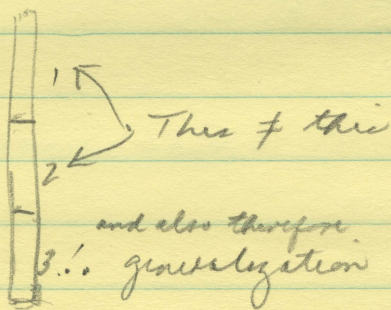 1
This ≠ this
2
and also therefore
3 ∴ generalization